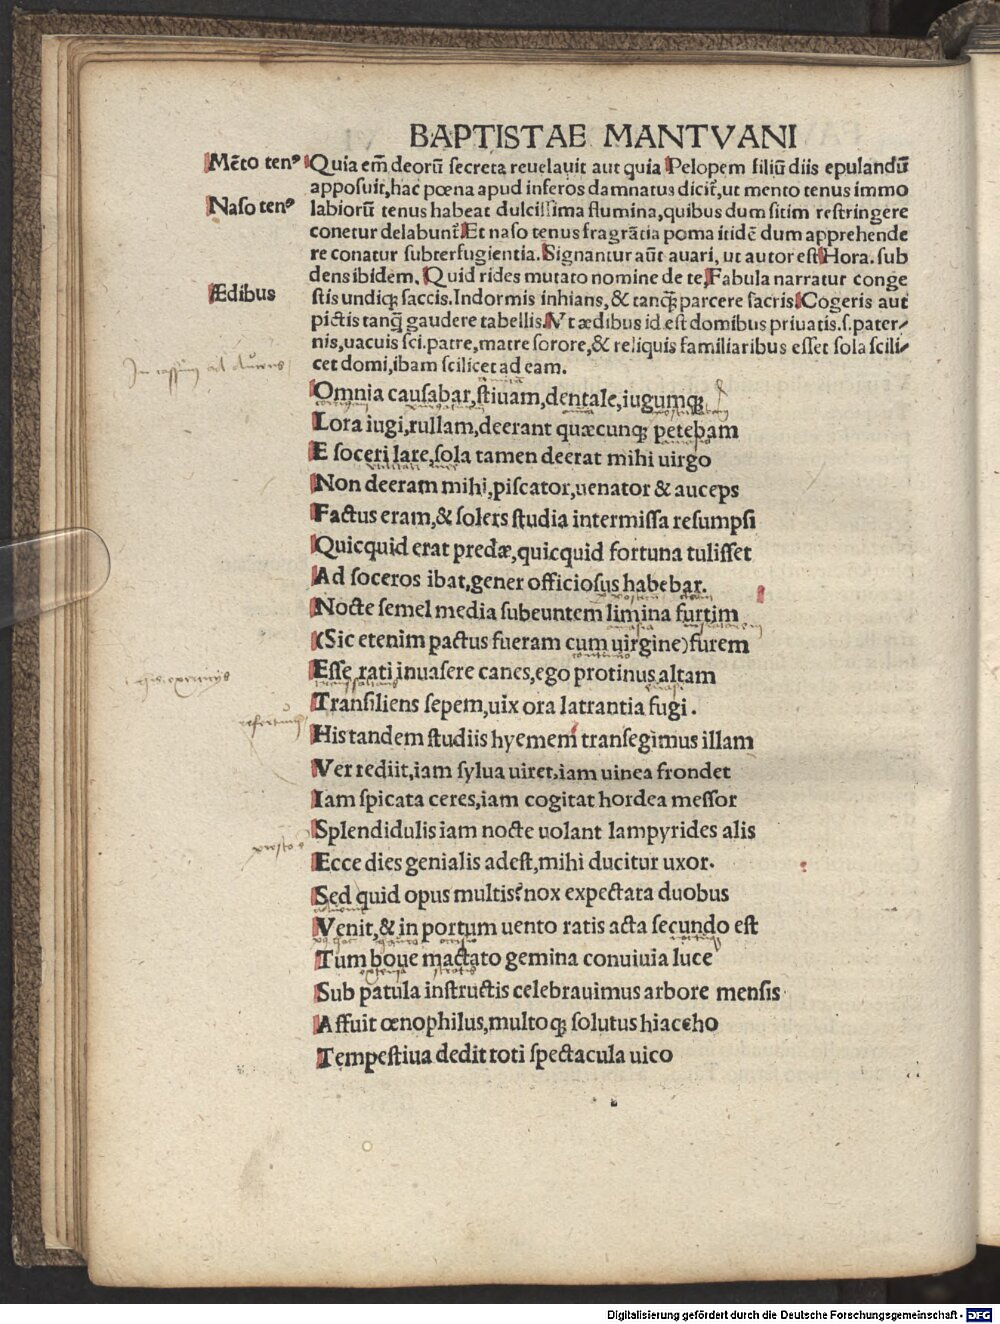 BAPTISTAE MANTVANI
Mēto tenꝰ
Quia em̄ deorū secreta reuelauit aut quia Pelopem filiū diis epulandū
apposuit, hac pœna apud inferos damnatus dicit̃, ut mento tenus immo
Naso tenꝰ
labiorū tenus habeat dulcissima flumina, quibus dum sitim restringere
conetur delabunt̃. Et naso tenus fragrātia poma itidē dum apprehende
re conatur subterfugientia. Signantur aūt auari, ut autor est Hora. sub
dens ibidem. Quid rides mutato nomine de te, Fabula narratur conge
Ædibus
stis undiqꝫ saccis. Indormis inhians, & tanqꝫ parcere sacris. Cogeris aut
pictis tanq̄ gaudere tabellis. Vt ædibus id est domibus priuatis .s. pater⸗
nis, uacuis sci. patre, matre sorore, & reliquis familiaribus esset sola scili⸗
cet domi, ibam scilicet ad eam.
Omnia causabar, stiuam, dentale, iugumqꝫ
Lora iugi, rullam, deerant quæcunqꝫ petebam
E soceri lare, sola tamen deerat mihi uirgo
Non deeram mihi, piscator, uenator & auceps
Factus eram, & solers studia intermissa resumpsi
Quicquid erat predæ, quicquid fortuna tulisset
Ad soceros ibat, gener officiosus habebar.
Nocte semel media subeuntem limina furtim
(Sic etenim pactus fueram cum uirgine) furem
Esse rati inuasere canes, ego protinus altam
Transiliens sepem, uix ora latrantia fugi.
His tandem studiis hyemem transegimus illam
Ver rediit, iam sylua uiret, iam uinea frondet
Iam spicata ceres, iam cogitat hordea messor
Splendidulis iam nocte uolant lampyrides alis
Ecce dies genialis adest, mihi ducitur uxor.
Sed quid opus multis? nox expectata duobus
Venit, & in portum uento ratis acta secundo est
Tum boue mactato gemina conuiuia luce
Sub patula instructis celebrauimus arbore mensis
Affuit œnophilus, multoqꝫ solutus hiaccho
Tempestiua dedit toti spectacula uico
Digitalisierung gefördert durch die Deutsche Forschungsgemeinschaft - DFG